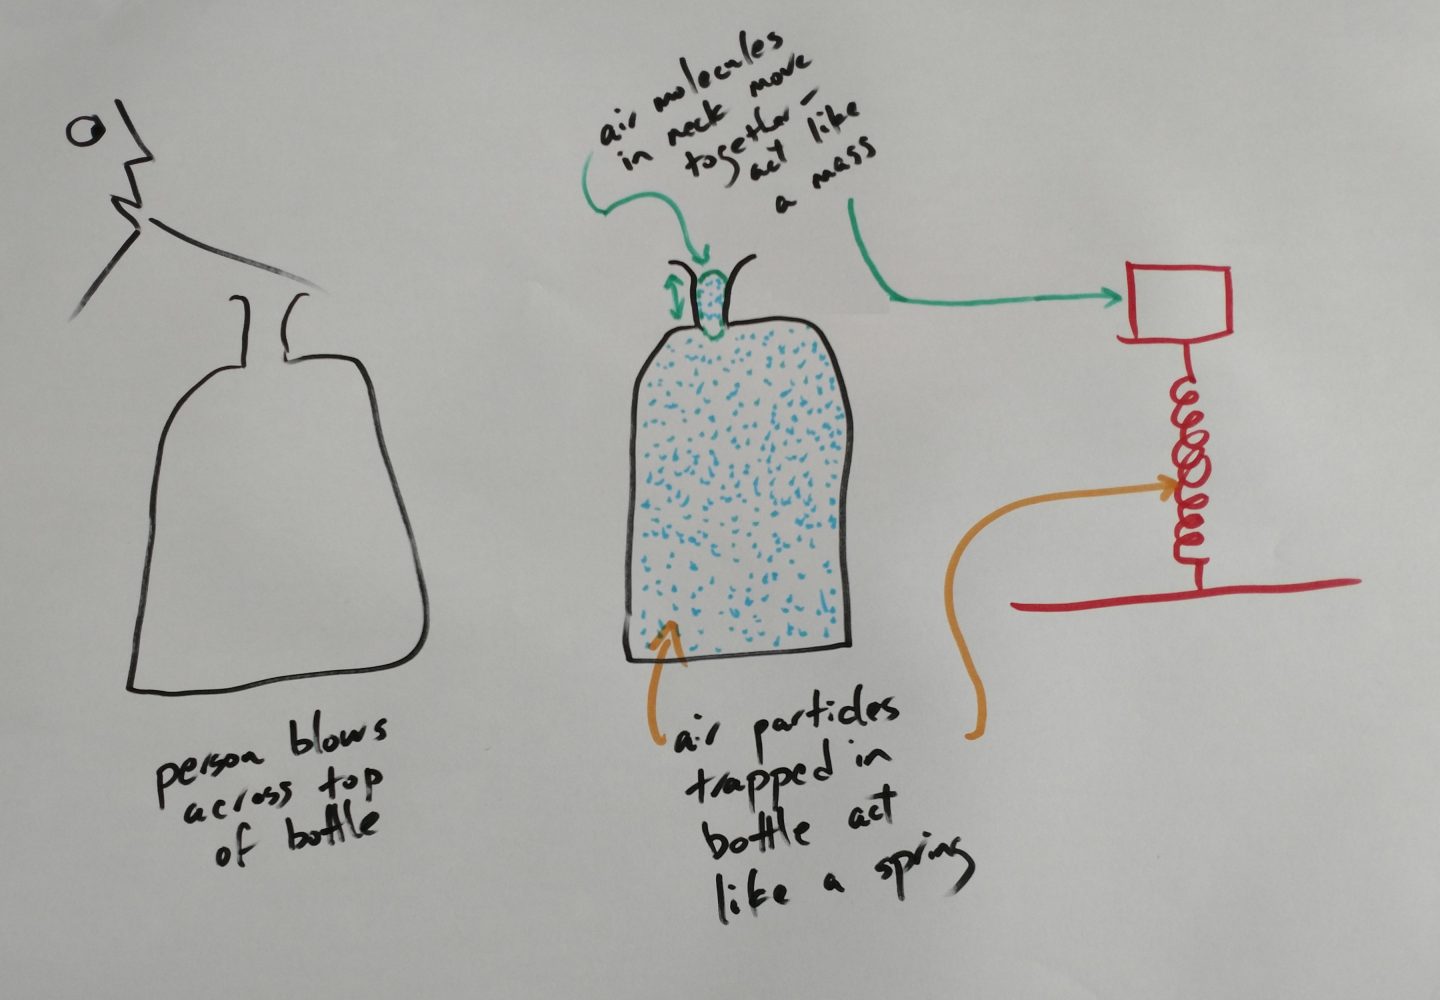 air molecules
in neck move
together –
act like
a mass
person blows
across top
of bottle
air particles
trapped in
bottle act
like a spring